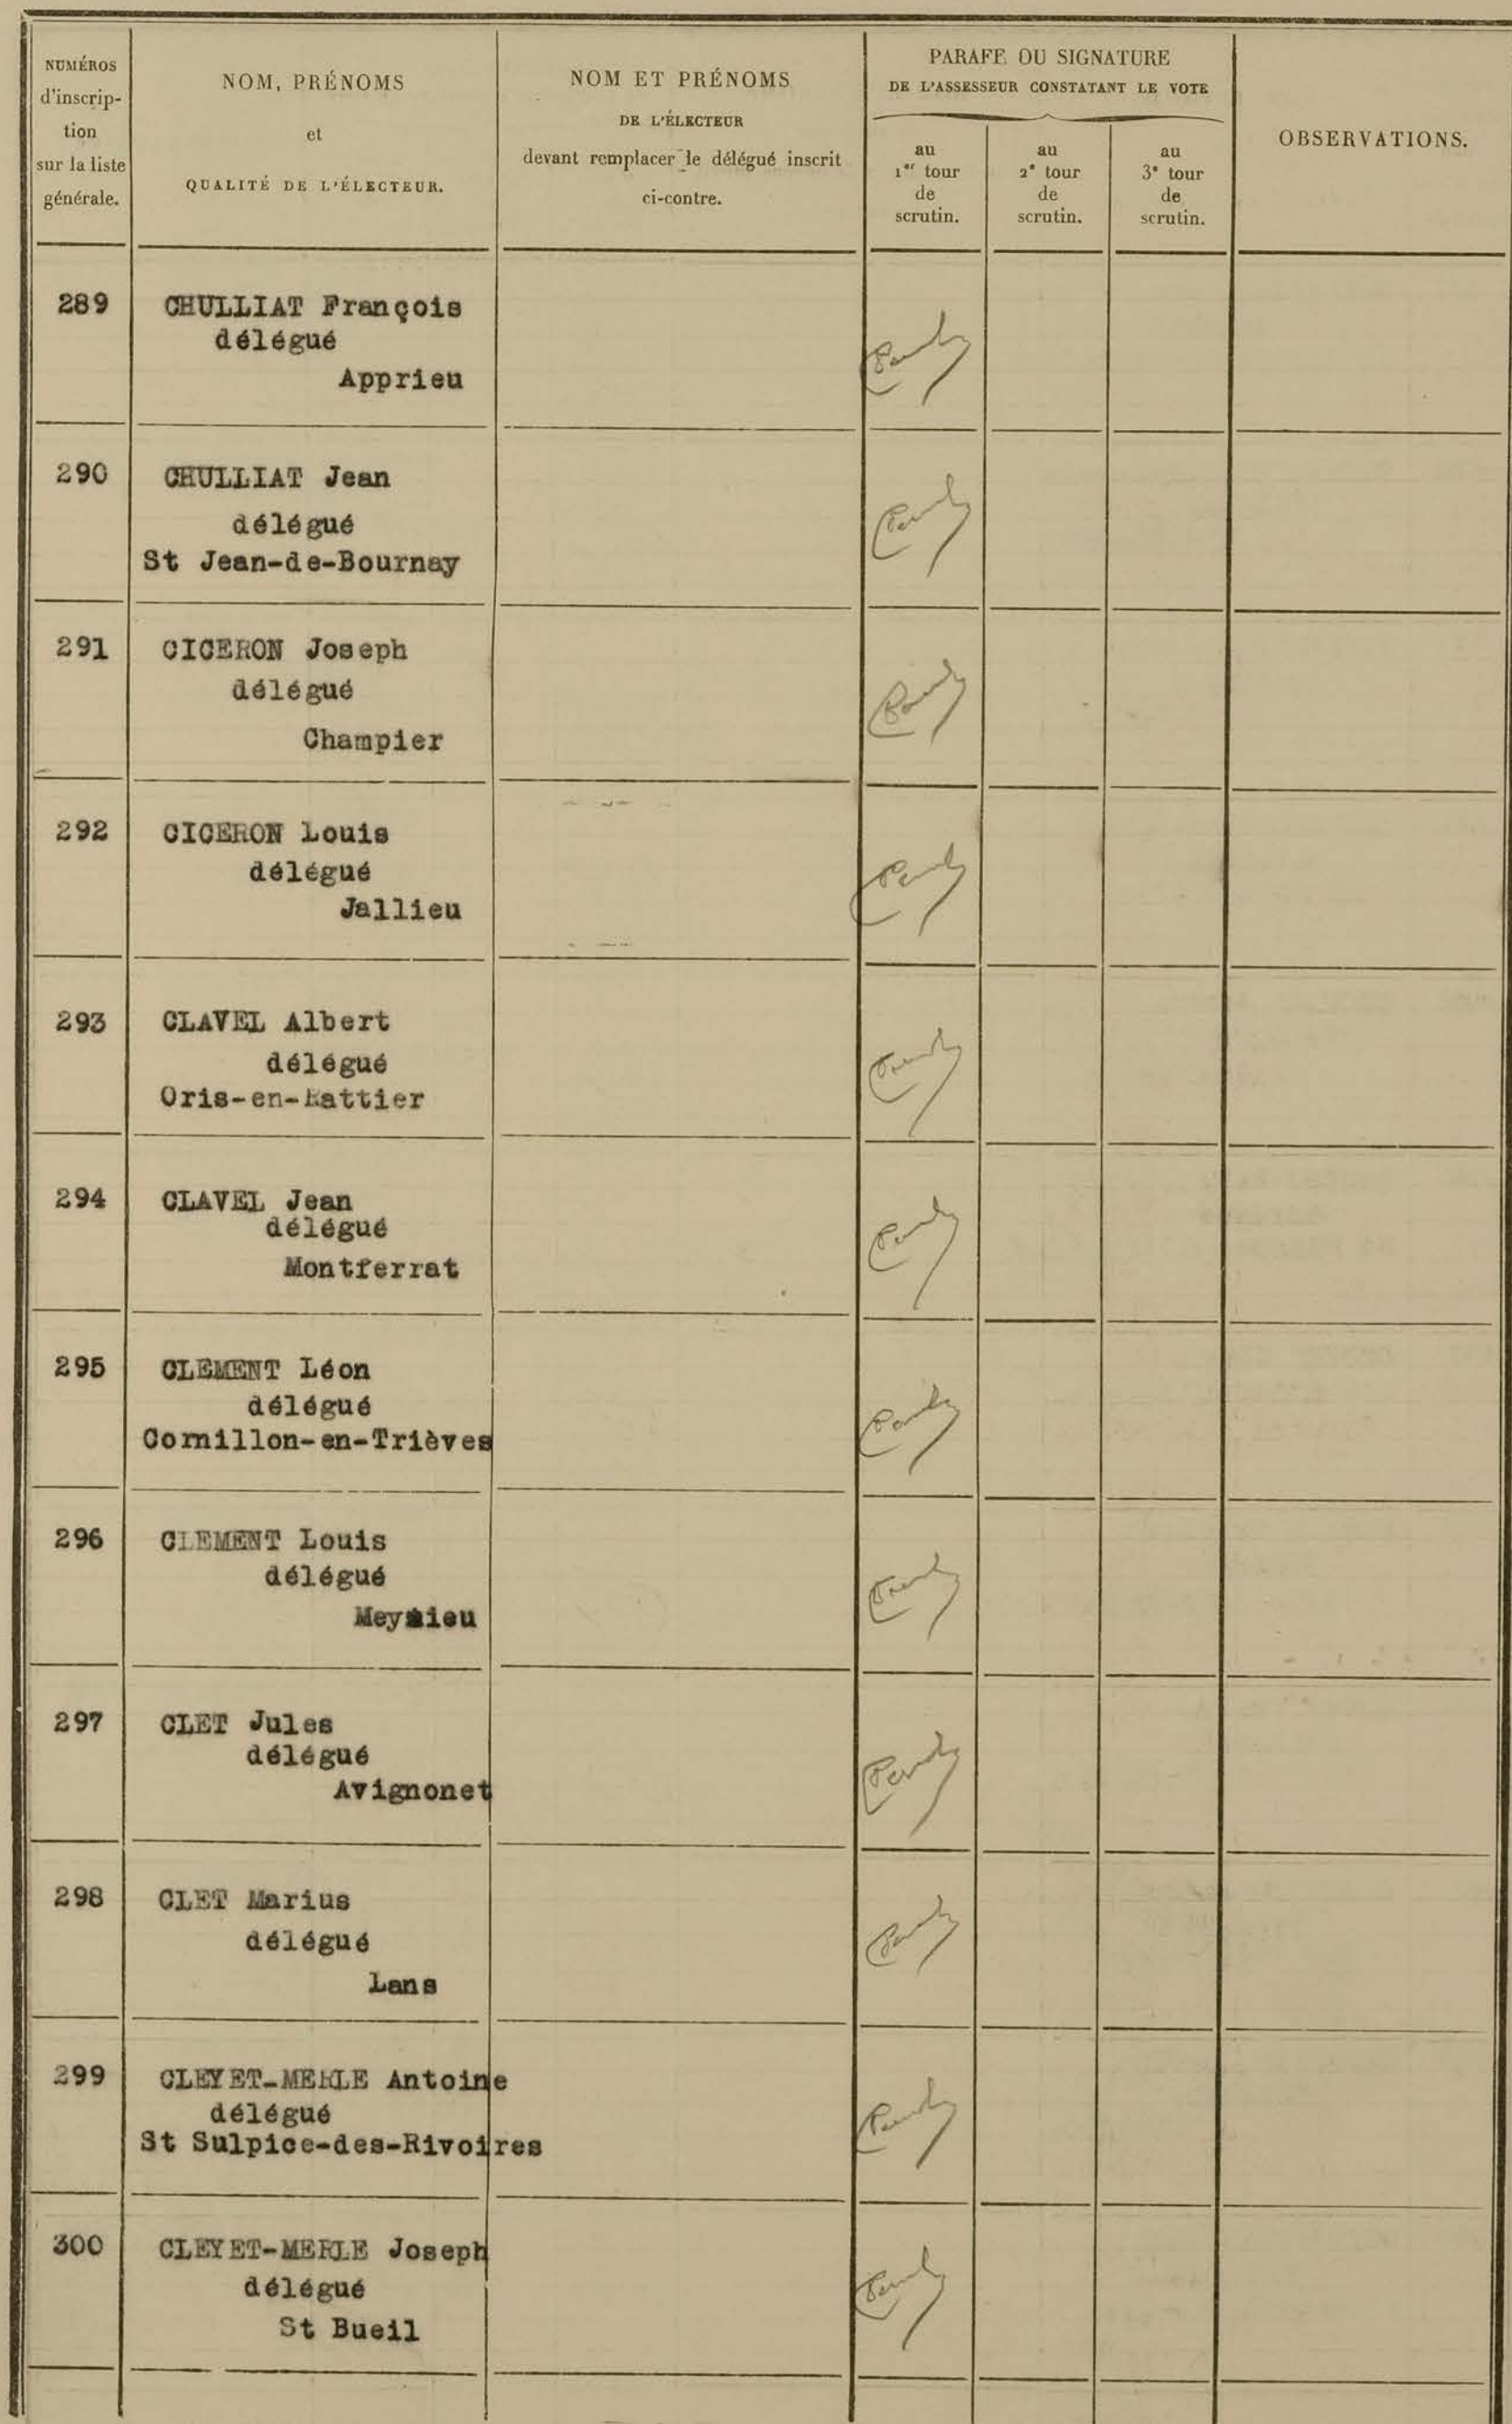 NUMÉROS
d'inscrip-
tion
sur la liste
générale.
NOM, PRÉNOMS
et
QUALITÉ DE L'ÉLECTEUR.
NOM ET PRÉNOMS
DE L'ÉLECTEUR
devant remplacer le délégué inscrit
ci-contre.
PARAFE OU SIGNATURE
DE L'ASSESSEUR CONSTATANT LE VOTE
au
1er tour
de
scrutin.
au
2e tour
de
scrutin.
au
3e tour
de
scrutin.
OBSERVATIONS.
289 CHULLIAT François
délégué
Apprieu
290 CHULLIAT Jean
délégué
St Jean-de-Bournay
291 CICERON Joseph
délégué
Champier
292 CICERON Louis
délégué
Jallieu
293 CLAVEL Albert
délégué
Oris-en-Rattier
294 CLAVEL Jean
délégué
Montferrat
295 CLEMENT Léon
délégué
Cornillon-en-Trièves
296 CLEMENT Louis
délégué
297 CLET Jules
délégué
Avignonet
298 CLET Marius
délégué
Lans
299 CLEYET-MERLE Antoine
délégué
St Sulpice-des-Rivoires
300 CLEYET-MERLE Joseph
délégué
St Bueil